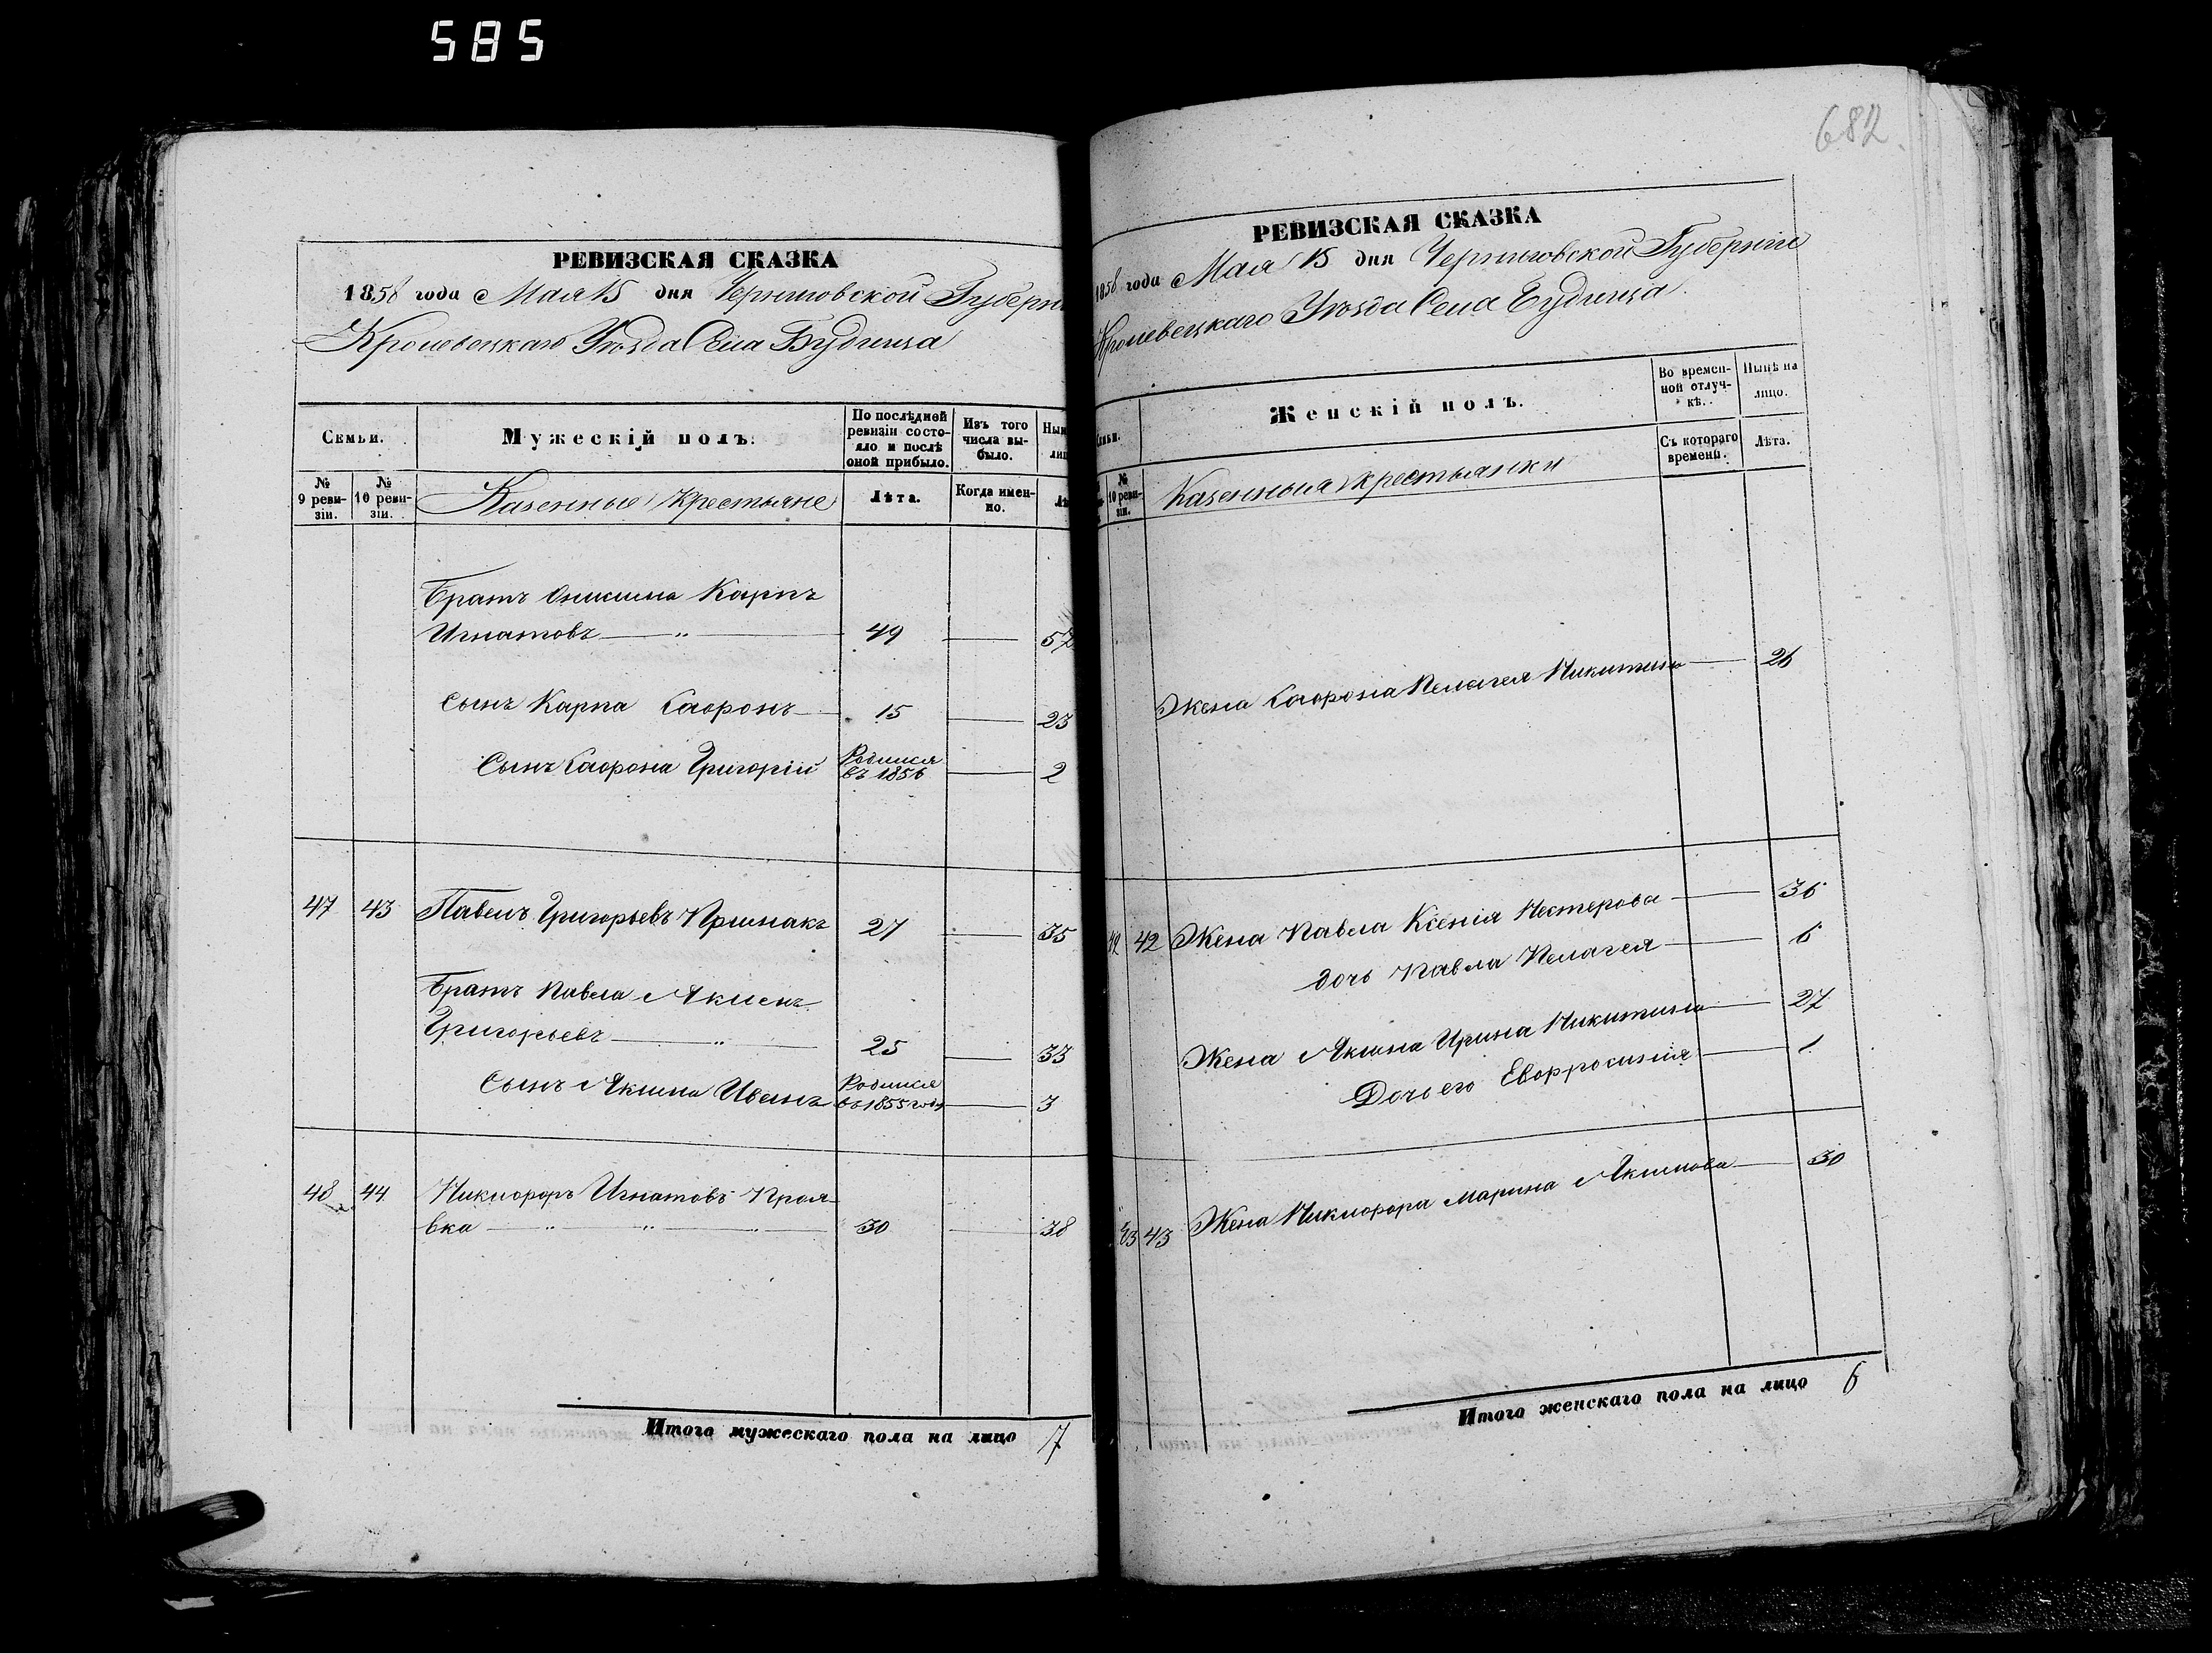 585
682
РЕВИЗСКАЯ СКАЗКА
1858 года Мая 15 дня Черниговской Губерн
Кролевецкаго Уѣзда Села Будища
Семьи.
Мужескій полъ.
По послѣдней ревизіи состояло и послѣ оной прибыло.
Изъ того числа выбыло.
№ 9 ревизіи.
№ 10 ревизіи.
Казенные Крестьяне
Лѣта.
Когда именно.
Братъ Онисима Карпъ
Игнатовъ — " — 49 — 57
Сынъ Карпа Сафронъ — 15 — 23
Сынъ Сафрона Григорій Родился въ 1856 — 2
47 43 Павелъ Григорьевъ Примакъ 27 — 35
Братъ Павла Акимъ
Григорьевъ — " — 25 — 33
Сынъ Акима Иванъ Родился въ 1855 году — 3
48 44 Никифоръ Игнатовъ Проя-
вка — " — " — " — 30 — 38
Итого мужескаго пола на лицо 7
РЕВИЗСКАЯ СКАЗКА
1858 года Мая 15 дня Черниговской Губерніи
Кролевецкаго Уѣзда Села Будища
Женскій полъ.
Во временной отлучкѣ.
Нынѣ на лицо.
№ 10 ревизіи.
Казенныя крестьянки
Съ котораго времени.
Лѣта.
Жена Сафрона Пелагея Никитина — 26
42 Жена Павла Ксенія Нестерова — 36
дочь Павла Пелагея — 6
Жена Акима Ирина Никитина — 27
Дочь его Евфросинія — 1
43 43 Жена Никифора Марина Акимова — 30
Итого женскаго пола на лицо 6